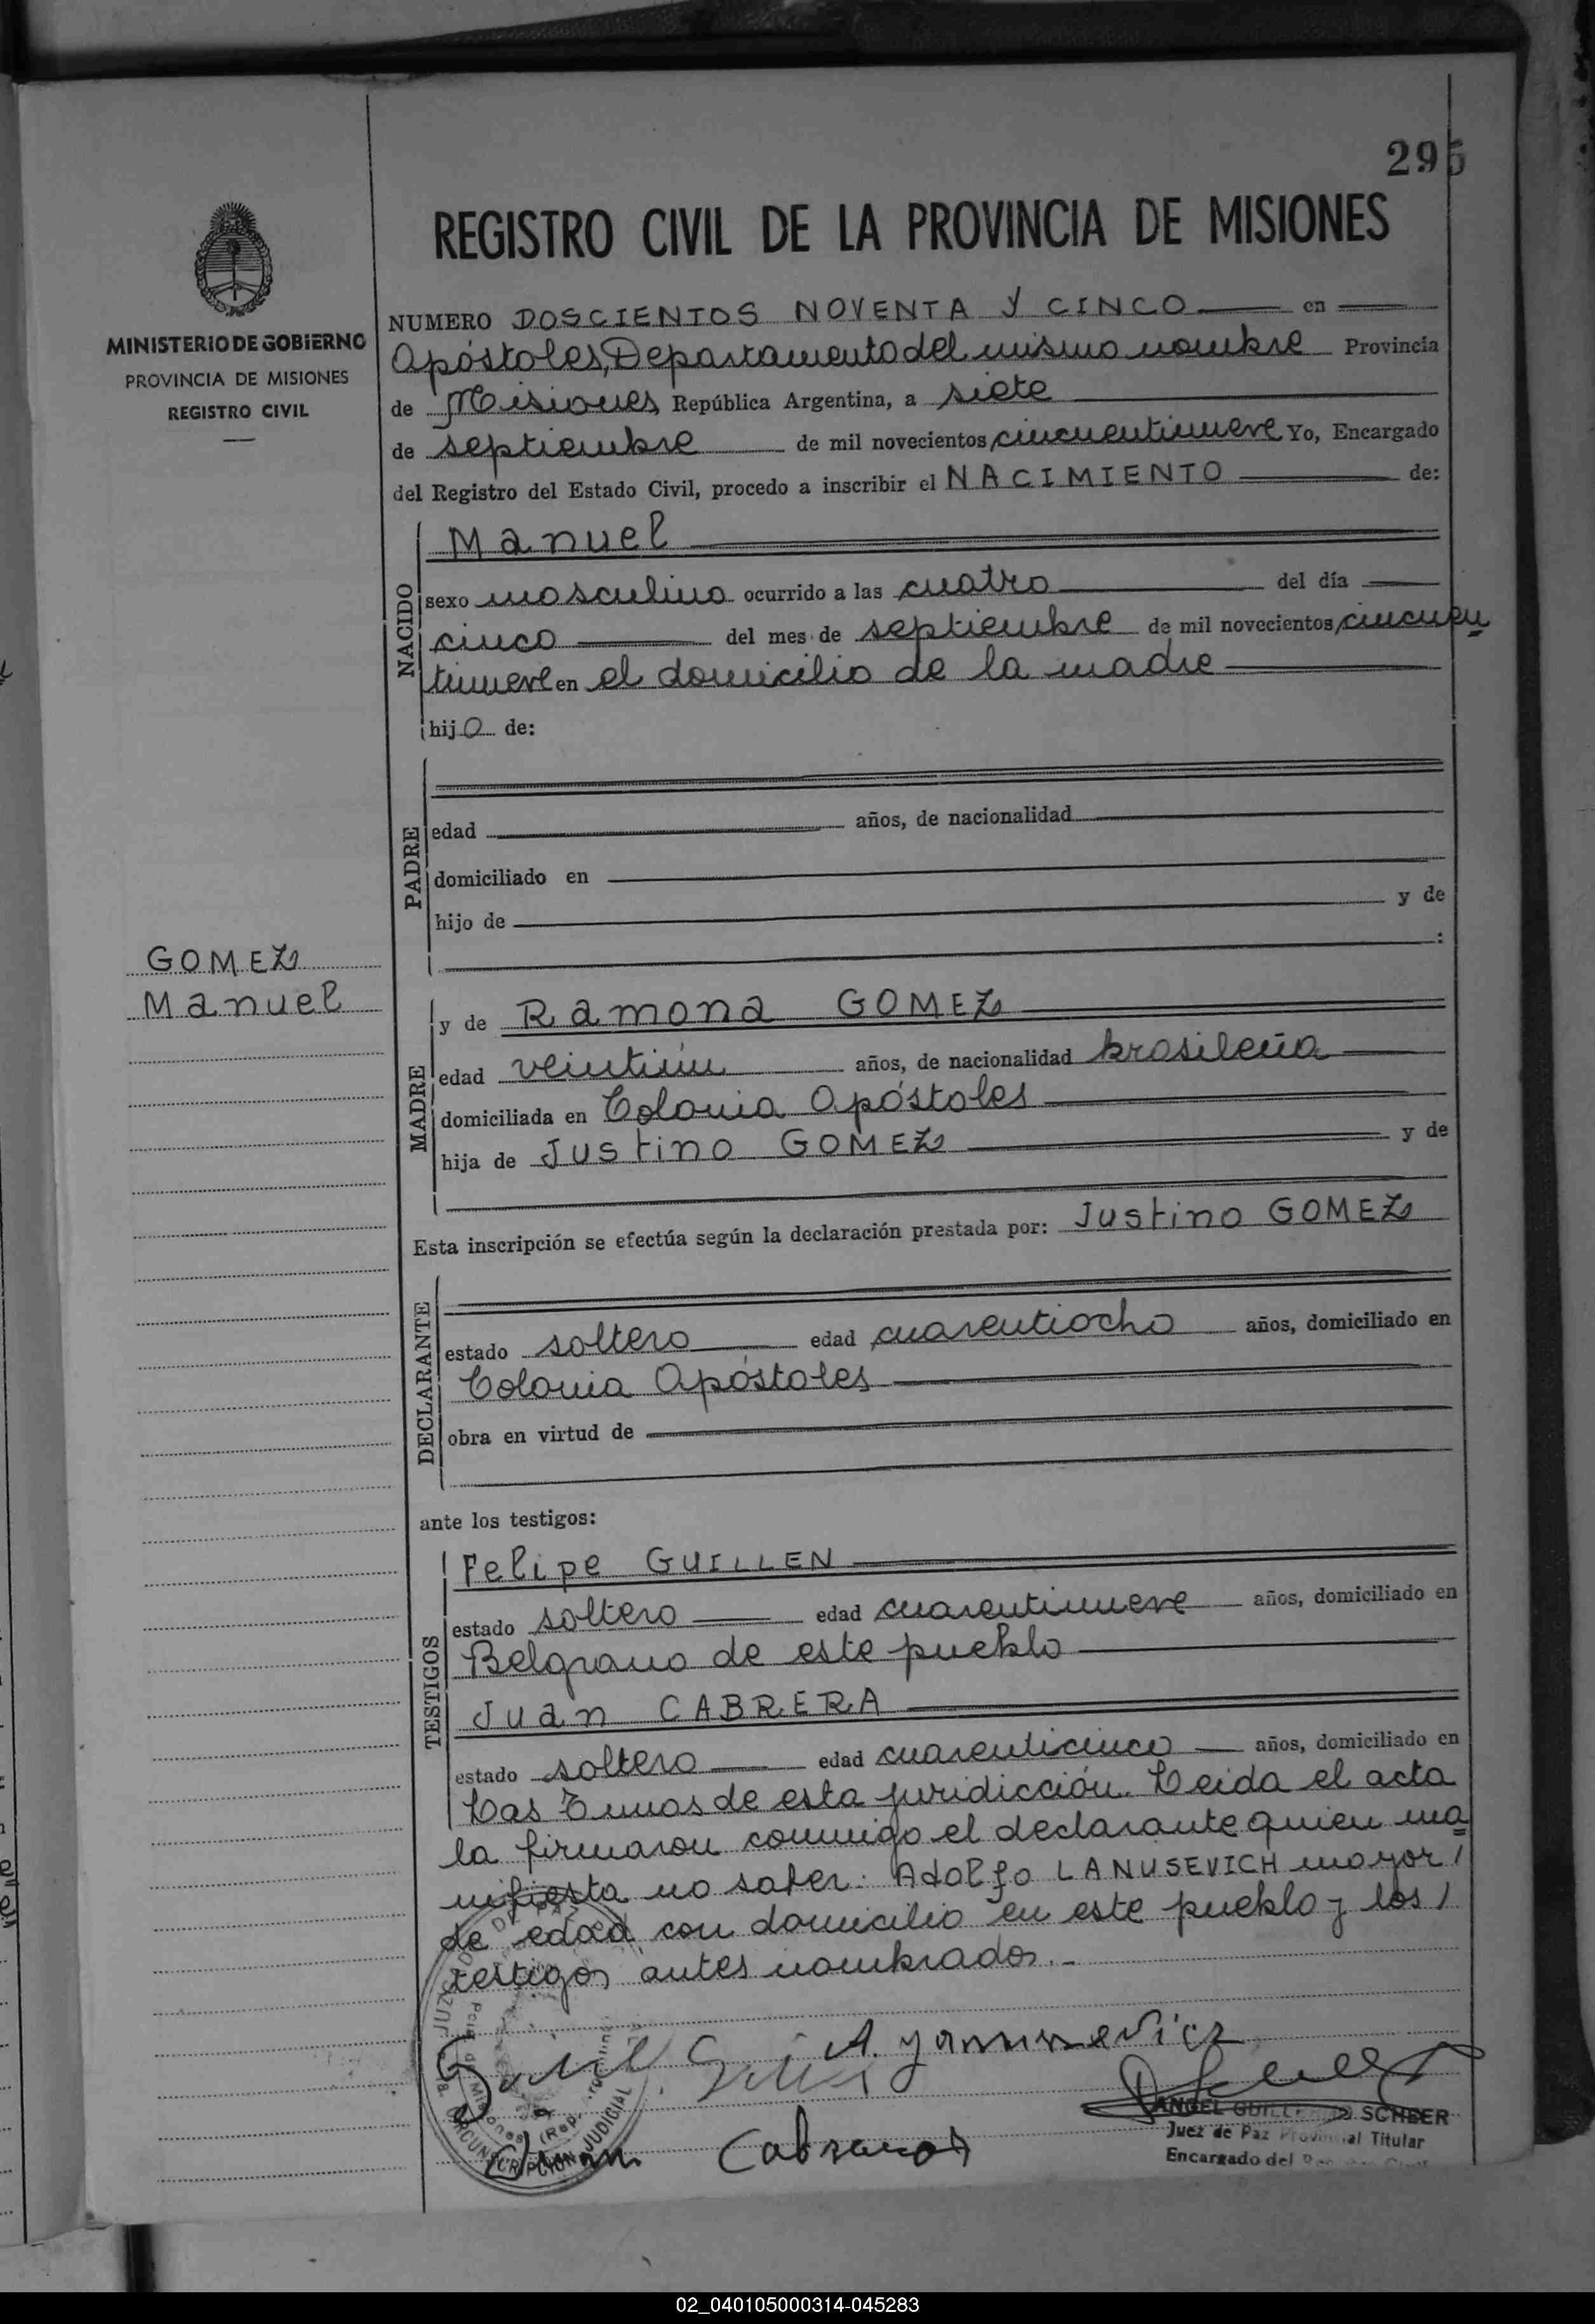 295
REGISTRO CIVIL DE LA PROVINCIA DE MISIONES
MINISTERIO DE GOBIERNO
PROVINCIA DE MISIONES
REGISTRO CIVIL
NUMERO DOSCIENTOS NOVENTA Y CINCO en
Apóstoles, Departamento del mismo nombre Provincia
de Misiones República Argentina, a siete
de septiembre de mil novecientos cincuentinueve Yo, Encargado
del Registro del Estado Civil, procedo a inscribir el NACIMIENTO de:
NACIDO
Manuel
sexo masculino ocurrido a las cuatro del día
cinco del mes de septiembre de mil novecientos cincuen
tinueve en el domicilio de la madre
hijo de:
PADRE
edad años, de nacionalidad
domiciliado en
hijo de y de
:
GOMEZ
Manuel
MADRE
y de Ramona GOMEZ
edad veintiún años, de nacionalidad brasileña
domiciliada en Colonia Apóstoles
hija de Justino GOMEZ y de
Esta inscripción se efectúa según la declaración prestada por: Justino GOMEZ
DECLARANTE
estado soltero edad cuarentiocho años, domiciliado en
Colonia Apóstoles
obra en virtud de
ante los testigos:
TESTIGOS
Felipe GUILLEN
estado soltero edad cuarentinueve años, domiciliado en
Belgrano de este pueblo
Juan CABRERA
estado soltero edad cuarenticinco años, domiciliado en
Las Tunas de esta juridicción. Leida el acta
la firmaron conmigo el declarante quien ma
nifiesta no saber: Adolfo LANUSEVICH mayor /
de edad, con domicilio en este pueblo y los /
testigos antes nombrados.-
JUZGADO DE PAZ
Pcia. de Misiones (Rep.
CIRCUNSCRIPCION JUDICIAL
Juan Cabrera
ANGEL GUILLERMO SCHEER
Juez de Paz Provincial Titular
Encargado del
02_040105000314-045283